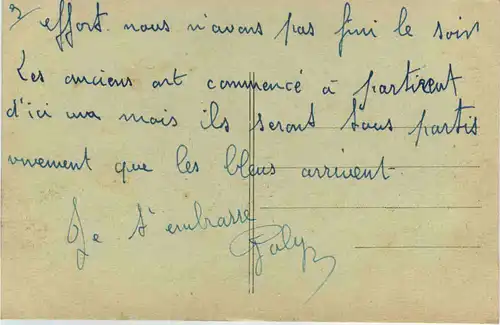 2 effort. nous n'avons pas fini le soir
Les anciens ont commencé à partirent
d'ici un mois ils seront tous partis
vivement que les bleus arrivent.
Je t'embrasse
Galy